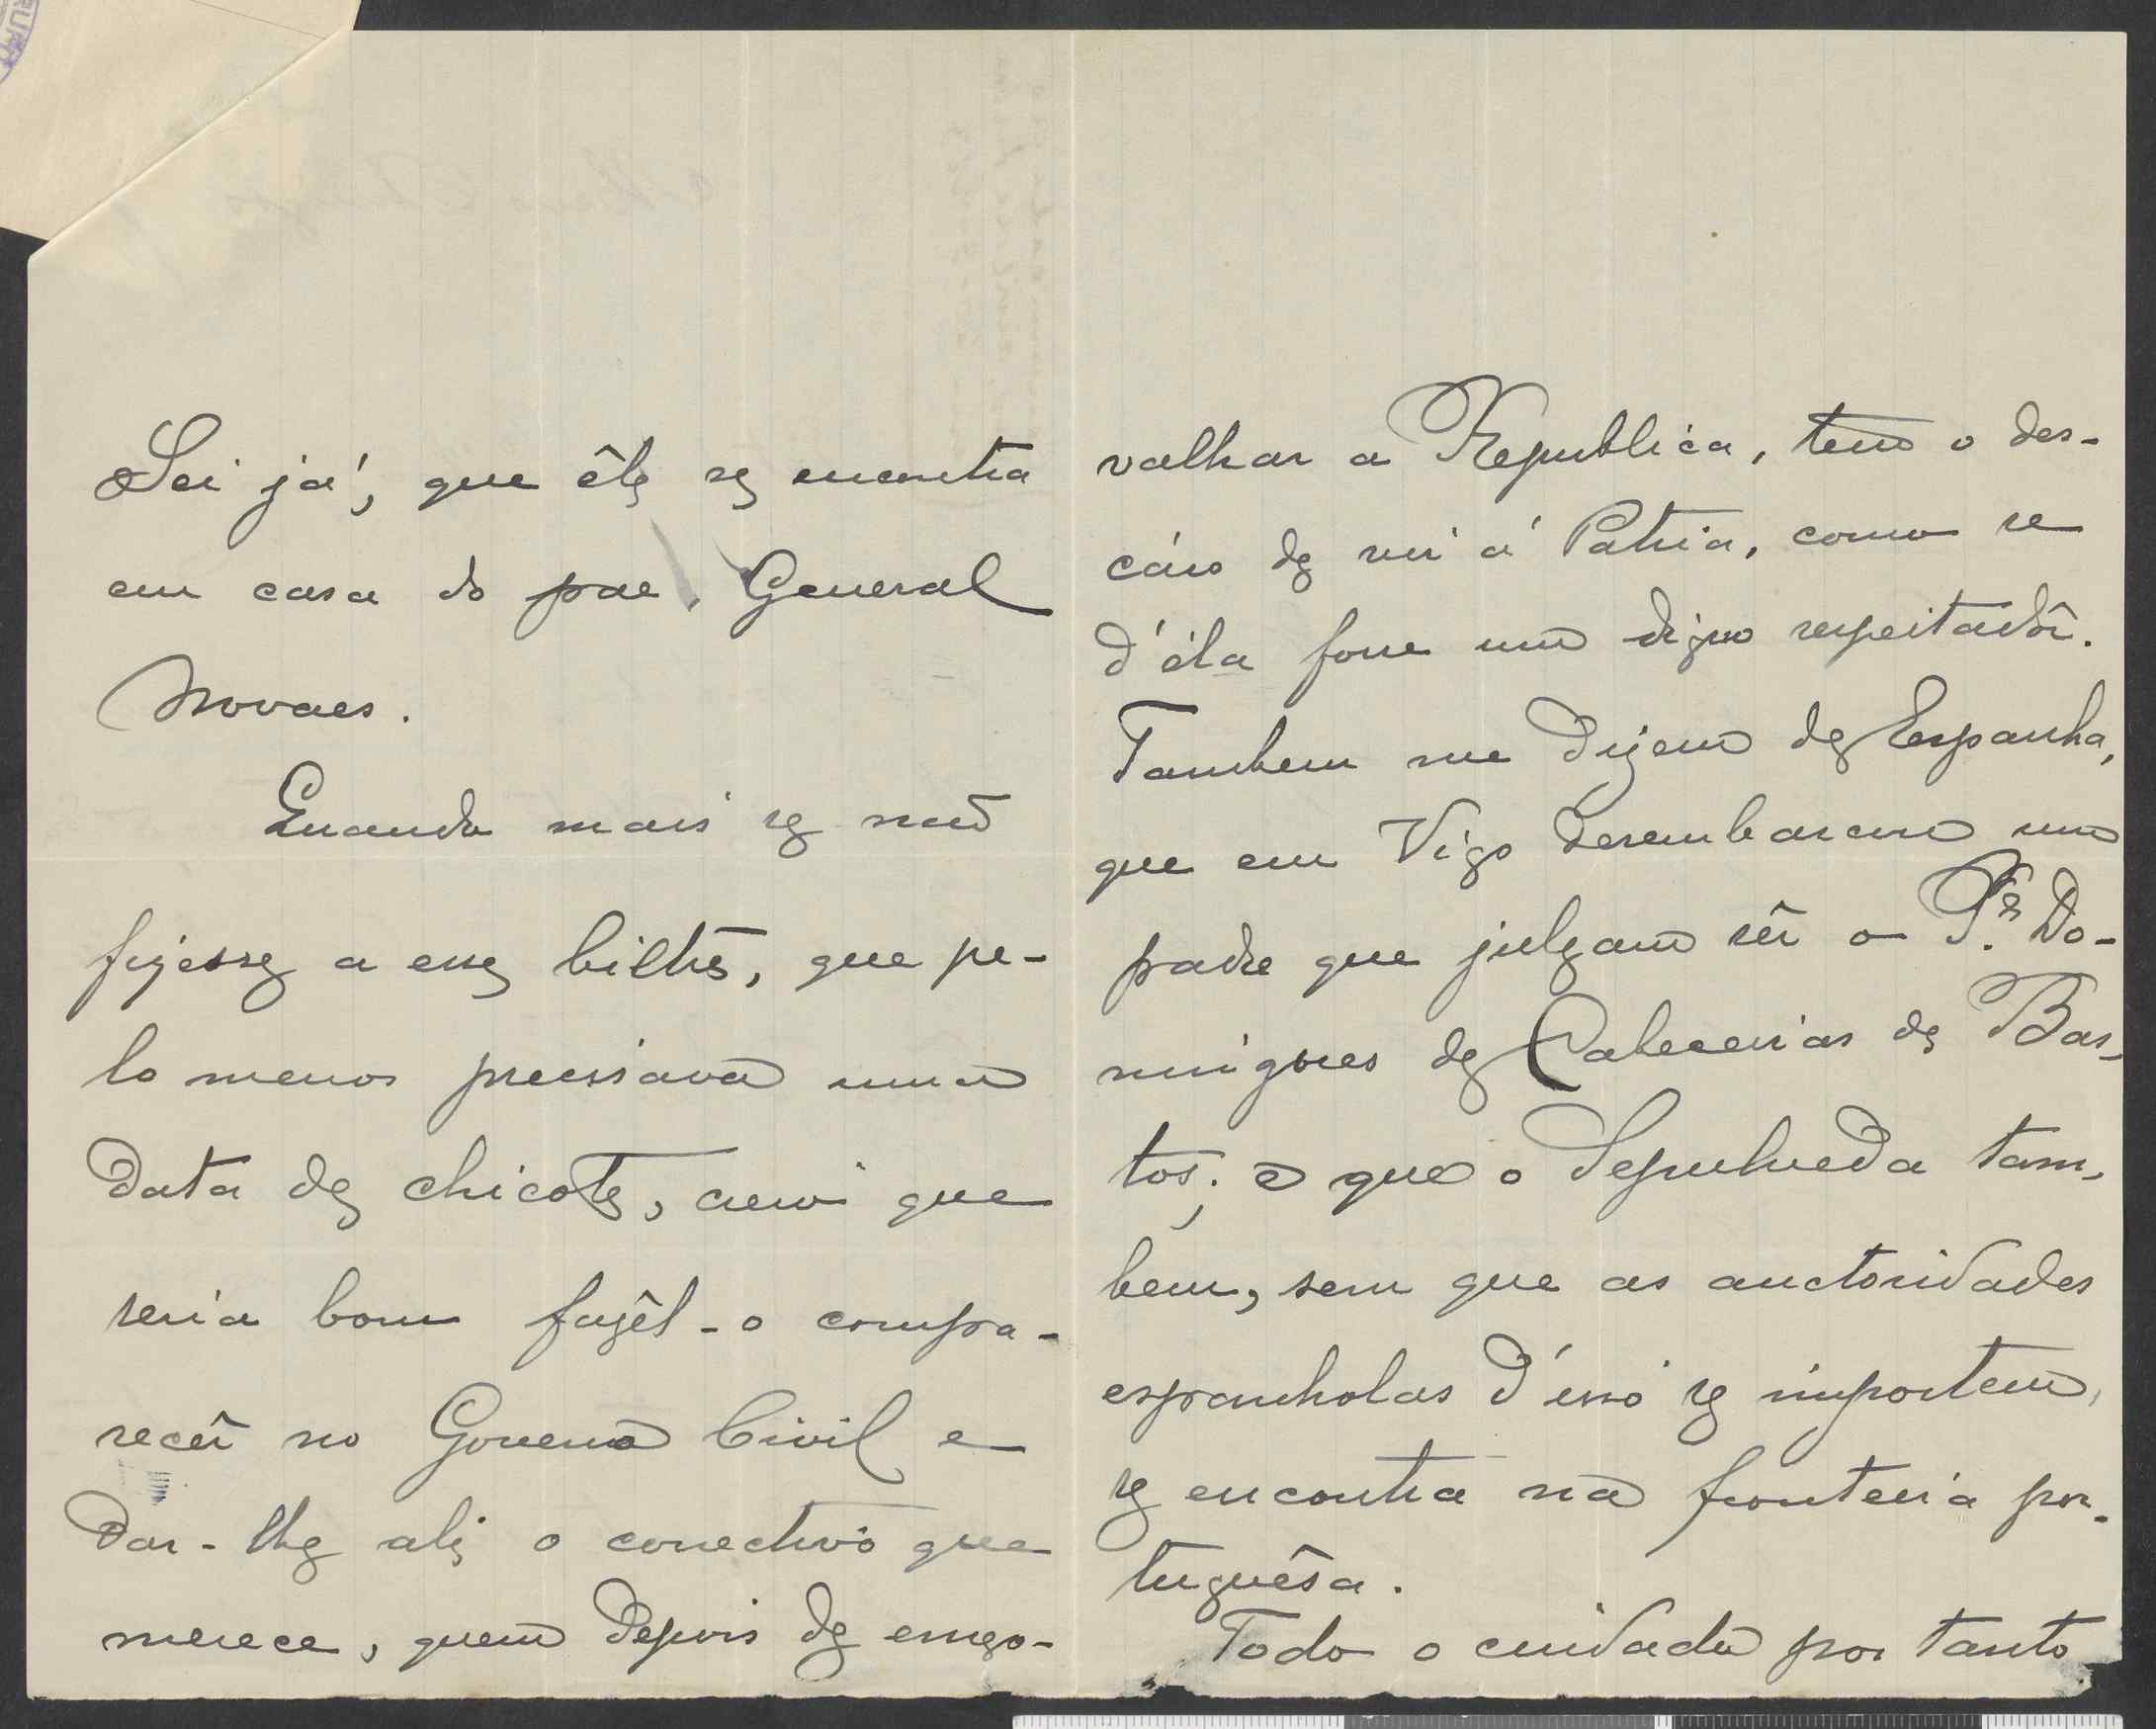 Sei já, que êle se encontra
em casa do pae, General
Novaes.
Quando mais se não
fizesse a esse biltre, que pe-
lo menos precisava uma
data de chicote, creio que
seria bom fazêl-o compa-
recêr no Governo Civil e
dar-lhe ali o correctivo que
merece, quem depois de enxo-
valhar a Republica, tem o des-
cáro de vir á Patria, como se
d'éla fosse um digno respeitadôr.
Tambem me dizem de Espanha,
que em Vigo desembarcou um
padre que julgam sêr o P.e Do-
mingues de Cabeceiras de Bas-
tos; e que o Sepulveda tam-
bem, sem que as auctoridades
espanholas d'isso se importem,
se encontra na fronteira por-
tuguêsa.
Todo o cuidado por tanto